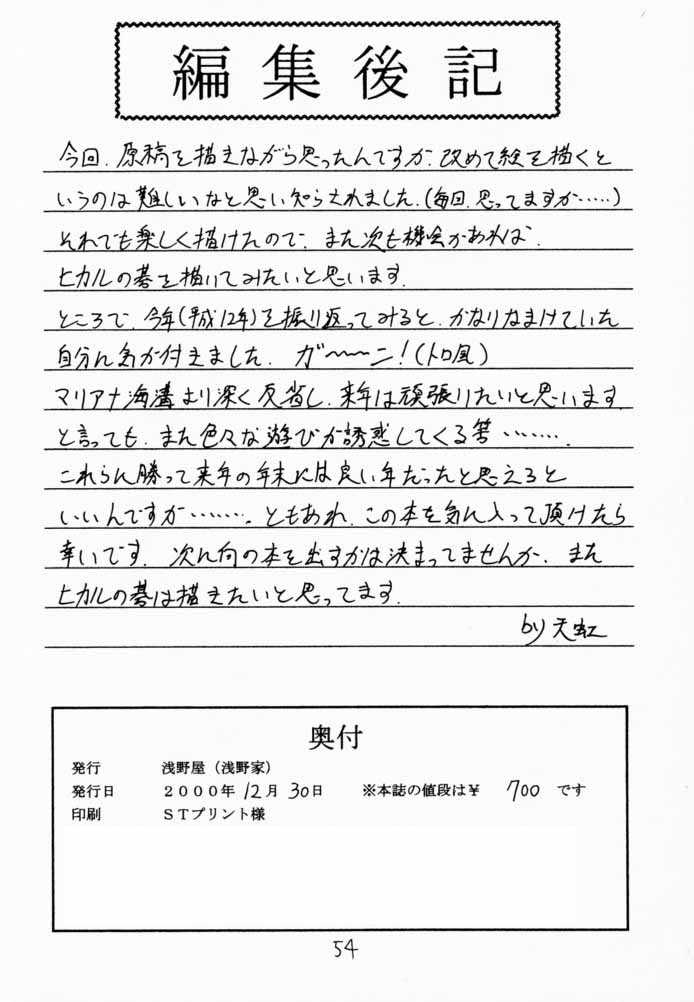 編集後記
今回、原稿を描きながら思ったんですが、改めて絵を描くと
いうのは難しいなと思い知らされました。(毎回、思ってますが……)
それでも楽しく描けたので、また次も機会があれば、
ヒカルの碁を描いてみたいと思います。
ところで、今年(平成12年)を振り返ってみると、かなりなまけていた
自分に気が付きました。ガ〜〜ン!(トロ風)
マリアナ海溝より深く反省し、来年は頑張りたいと思います。
と言っても、また色々な遊びが誘惑してくる筈……。
これらに勝って来年の年末には良い年だったと思えると
いいんですが……。ともあれ、この本を気に入って頂けたら
幸いです。次に何の本を出すかは決まってませんが、また
ヒカルの碁は描きたいと思ってます。
by 天虹
奥付
発行 浅野屋(浅野家)
発行日 2000年12月30日 ※本誌の値段は¥ 700 です
印刷 STプリント様
54